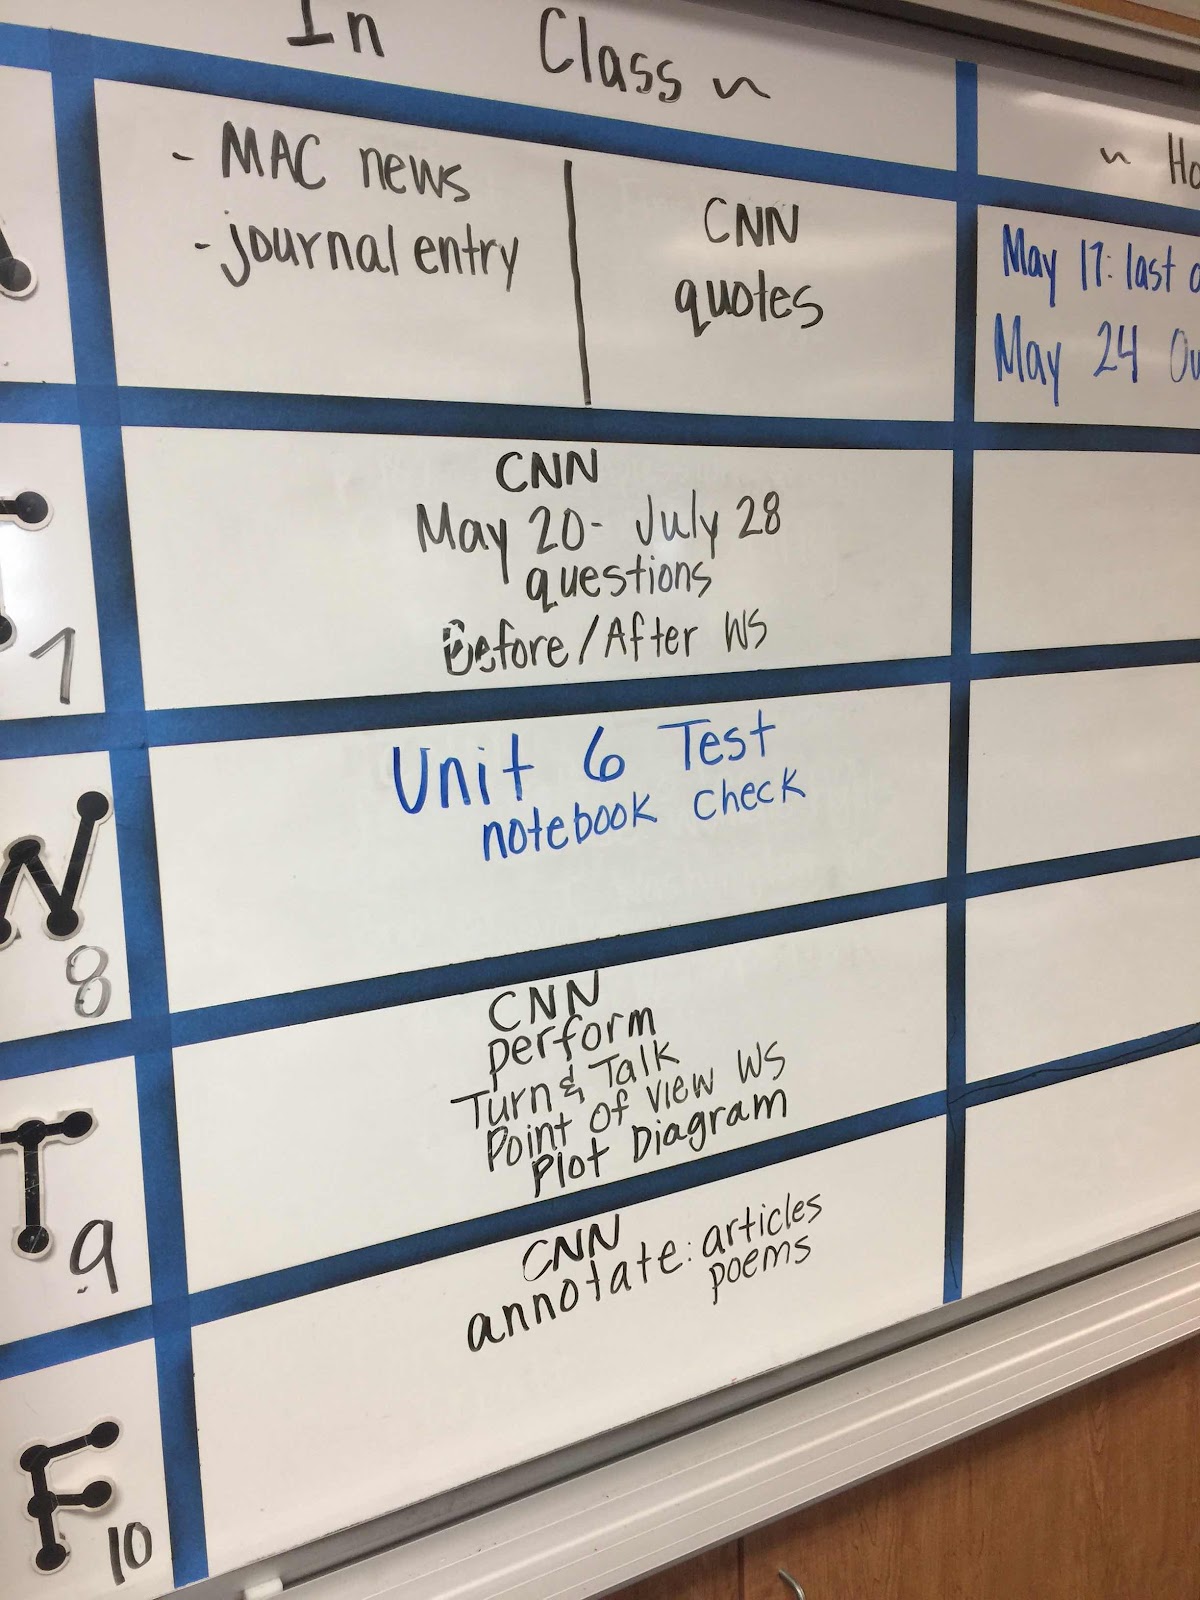 In Class ~
~ Ho
- MAC news
- journal entry
CNN
quotes
May 17: last
May 24
T
7
CNN
May 20 - July 28
questions
Before/After WS
W
8
Unit 6 Test
notebook check
T
9
CNN
perform
Turn & Talk
Point of View WS
Plot Diagram
F
10
CNN
annotate: articles
poems